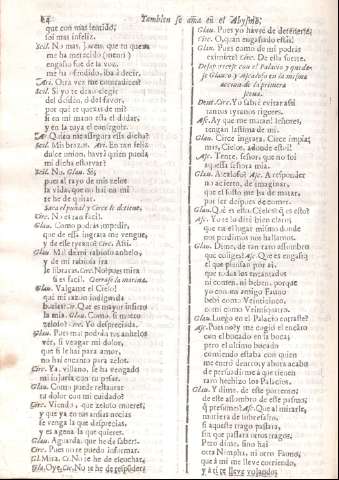 64 Tambien se ama en el Abysmo.
que con mas sentido,
soi mas infeliz.
Scil. No mas, joven, que tu quexa
me ha merecido
engaño fue de la voz,
me ha ofendido, iba à decir.
Scil. Si yo te dexo elegir
del desden, ò del favor,
por què te quexas de mi?
si en mi mano està el dudar,
y en la tuya el
Quien me assegura essa dicha?
Scil. Mis brazos. En tan feliz
dulce union, havrà quien pueda
mi dicha estorvar?
Scil. No. Glau. Sì,
pues al rayo de mis zelos
la vida, que no hai en mi
te he de quitar.
Saca el puñal y Circe le detiene.
Circ. No es tan facil.
Glau. Como podràs impedir,
que de essa ingrata me vengue,
y de esse tyrano? Circ. Assi.
Glau. Mal darmi rabioso anhelo,
y de mi rabiosa ira
le libraràs. Circ. No pues mira
si es facil. Cierrase la marina.
Glau. Valgame el Cielo!
què mi razon indignada
burles? Circ. Que es mayor infiero
la mia. Glau. Como, si muero
zeloso? Circ. Yo despreciada.
Glau. Pues mas podràn tus anhelos
vèr, si vengar mi dolor,
que si le hai para amor,
no hai encanto para zelos.
Circ. Ya, villano, se ha vengado
mi injuria con tu pesar.
Glau. Como puede restaurar
tu dolor con mi cuidado?
Circ. Viendo, que zeloso mueres,
y que ya en tus ansias necias
se venga la que desprecias,
y es agena la que quieres.
Glau. Aguarda, que he de saber.
Circ. Pues no te puedo informar.
Gl. Mira. Ci. No te he de escuchar,
Gla. Oye. Cir. No te he de responder;
Glau. Pues yo havrè de detenerte;
Circ. O, quan engañado estàs!
Glau. Pues como de mi podràs
eximirte? Circ. De essa suerte.
Desaparecese con el Palacio y quedase
Glauco y Ascalafo en la misma
accion de la primera
scena.
Dent. Circ. Yo sabrè evitar assi
tantos tyranos rigores.
Asc. Ay que me matan! señores,
tengan lastima de mi.
Glau. Circe ingrata, Circe impìa;
mas, Cielos, adonde estoi!
Asc. Tente, señor, que no soi
aquella señora mia.
Glau. Ascalafo? Asc. A responder
no acierto, de imaginar,
que el susto me ha de matar,
por ser despues de comer.
Glau. Què es esto, Cielos? què es esto?
Asc. Yo te lo dirè bien claro;
que en el lugar mismo donde
nos perdimos nos hallamos.
Glau. Dime, de tan raro assombro
què coliges? Asc. Que es engaño
el que piensan por aì,
que todos los encantados
ni comen, ni beben, porque
yo con un amigo Fauno
bebì como Veinticinco,
comì como Veintiquatro.
Glau. Luego en el Palacio entraste?
Asc. Pues no? y me cogiò el encanto
con el bocado en la boca;
pero el ultimo bocado
comiendo estaba con quien
me entrò dentro; y ahora acabo
de persuadirme à que tienen
tambien hechizo los Palacios.
Glau. Y dime, de este portento,
de este assombro de este pasmo;
què presumes? Asc. Que al mirarle,
muriera de sobresalto,
si aqueste trago passara,
sin que passara otros tragos:
Pero dime, sino hai
otra Nimpha, ni otro Fauno,
que à mi me lleve corriendo,
y à ti te lleve volando;